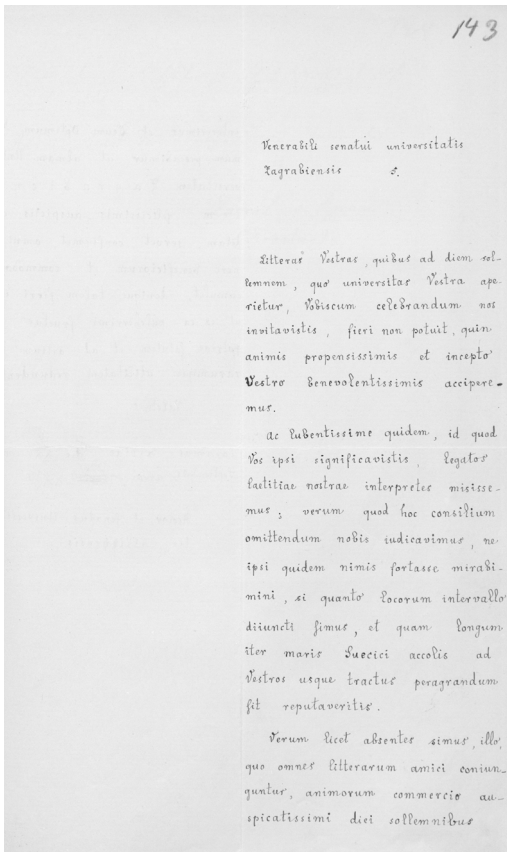 143
Venerabili senatui universitatis
Zagrabiensis s.
Litteras Vestras, quibus ad diem sol-
lemnem, quo universitas Vestra ape-
rietur, Vobiscum celebrandum nos
invitavistis, fieri non potuit, quin
animis propensissimis et incepto
Vestro benevolentissimis accipere-
mus.
Ac lubentissime quidem, id quod
Vos ipsi significavistis, legatos
laetitiae nostrae interpretes misisse-
mus; verum quod hoc consilium
omittendum nobis iudicavimus, ne
ipsi quidem nimis fortasse mirabi-
mini, si quanto locorum intervallo
diiuncti simus, et quam longum
iter maris Suecici accolis ad
Vestros usque tractus peragrandum
sit reputaveritis.
Verum licet absentes simus, illo,
quo omnes litterarum amici coniun-
guntur, animorum commercio au-
spicatissimi diei sollemnibus